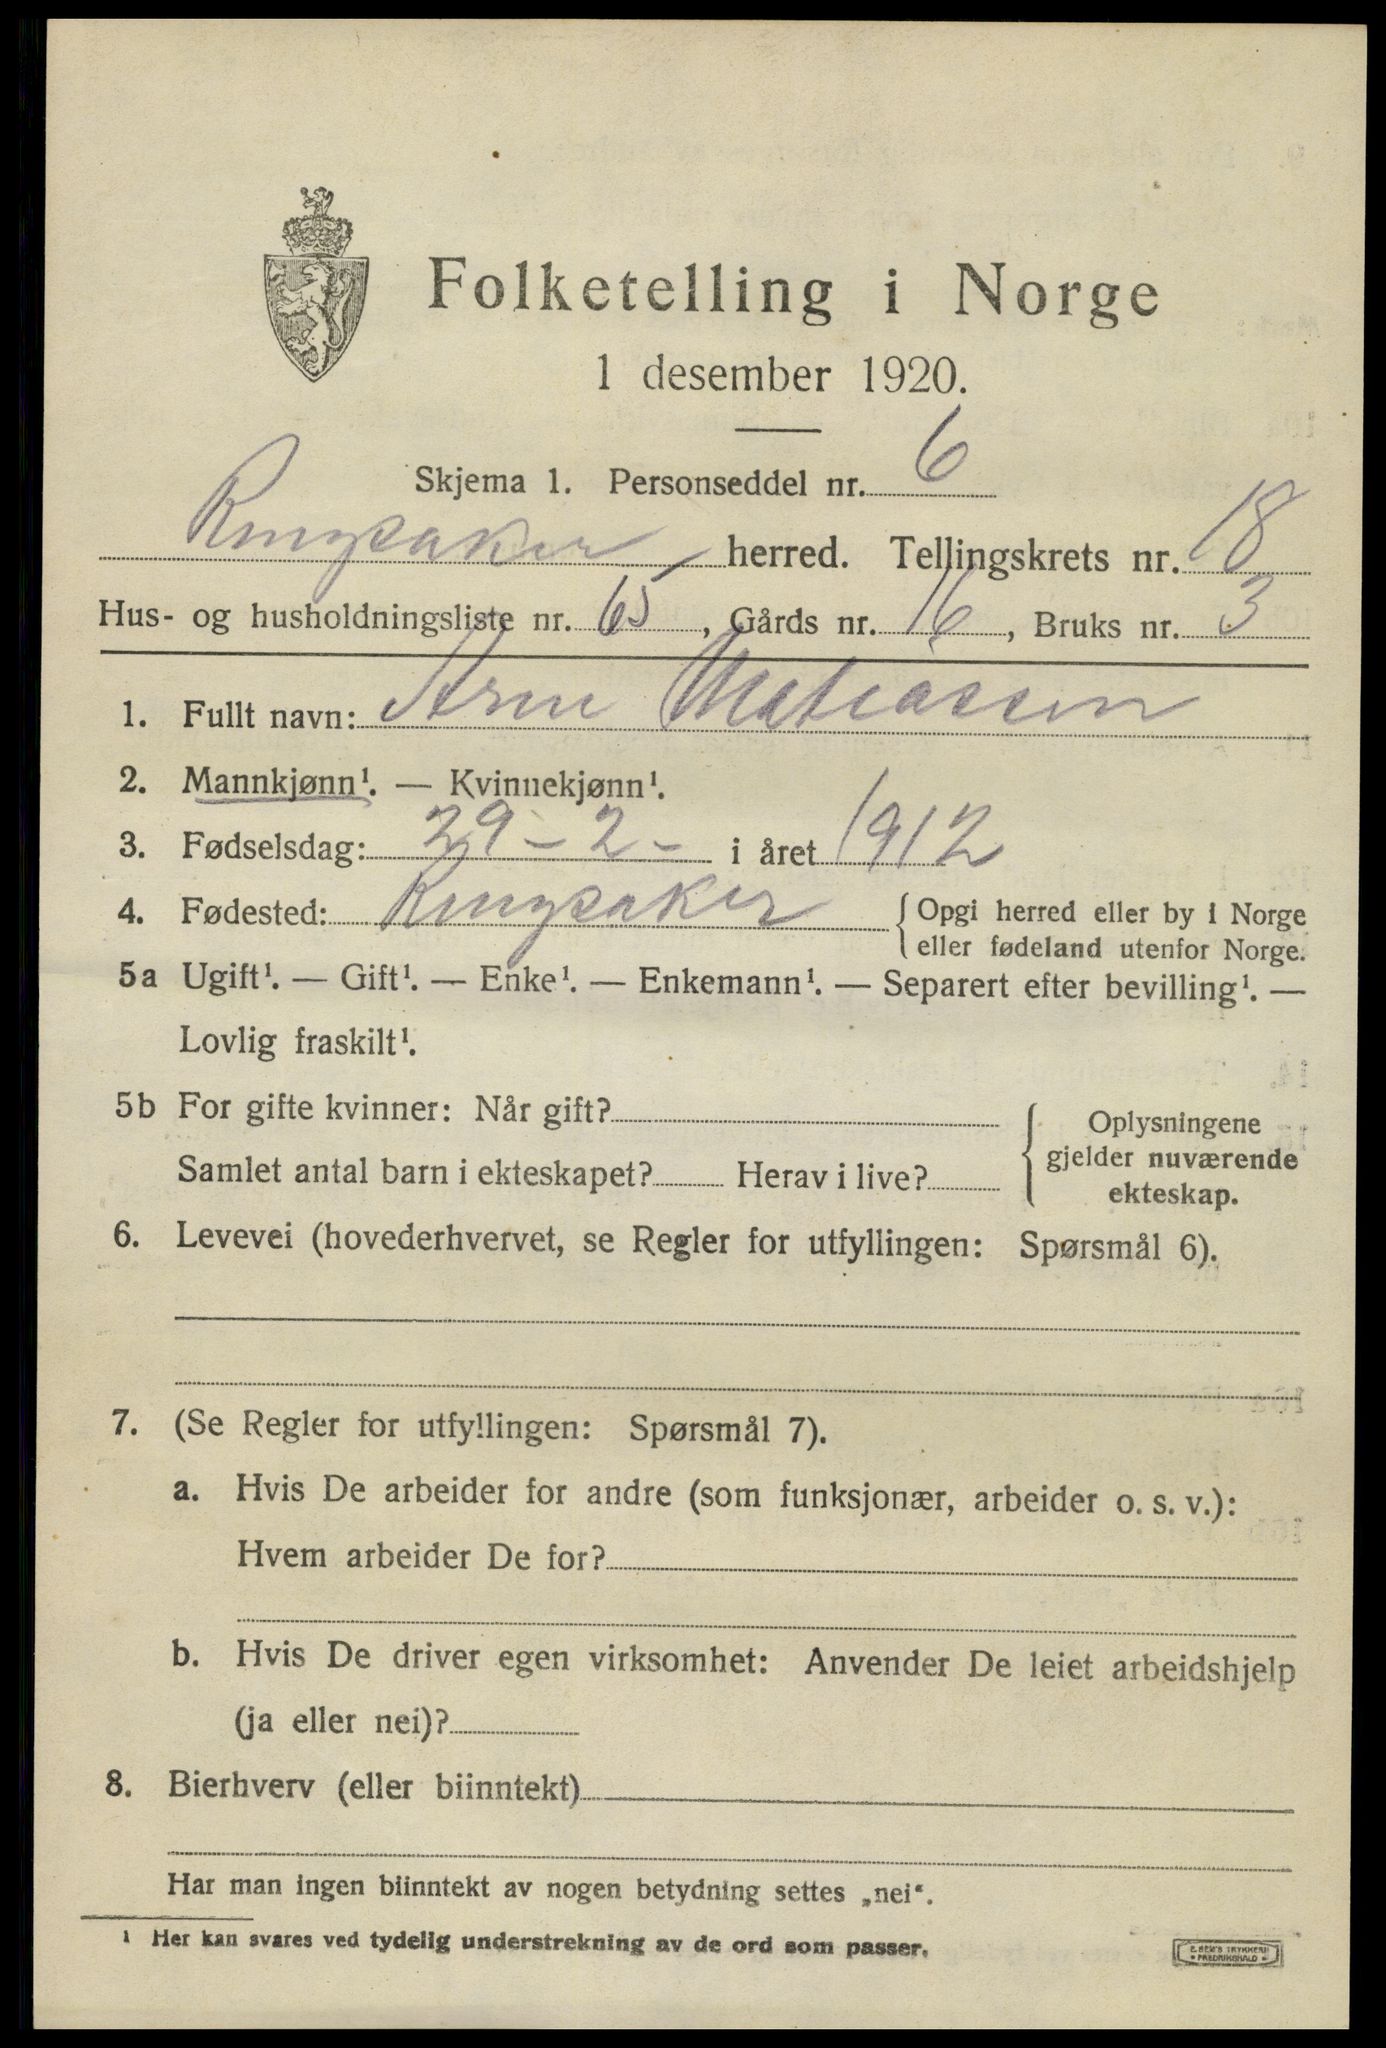 Folketelling i Norge
1 desember 1920.
Skjema 1. Personseddel nr. 6
Ringsaker herred. Tellingskrets nr. 18
Hus- og husholdningsliste nr. 65, Gårds nr. 16, Bruks nr. 3
1. Fullt navn: Arne Matiassen
2. Mannkjønn¹. — Kvinnekjønn¹.
3. Fødselsdag: 29 - 2 - i året 1912
4. Fødested: Ringsaker { Opgi herred eller by i Norge
eller fødeland utenfor Norge.
5a Ugift¹. — Gift¹. — Enke¹. — Enkemann¹. — Separert efter bevilling¹. —
Lovlig fraskilt¹.
5b For gifte kvinner: Når gift?
Samlet antal barn i ekteskapet? Herav i live?
{ Oplysningene
gjelder nuværende
ekteskap.
6. Levevei (hovederhvervet, se Regler for utfyllingen: Spørsmål 6).
7. (Se Regler for utfyllingen: Spørsmål 7).
a. Hvis De arbeider for andre (som funksjonær, arbeider o. s. v.):
Hvem arbeider De for?
b. Hvis De driver egen virksomhet: Anvender De leiet arbeidshjelp
(ja eller nei)?
8. Bierhverv (eller biinntekt)
Har man ingen biinntekt av nogen betydning settes „nei“.
¹ Her kan svares ved tydelig understrekning av de ord som passer.
E. SEM'S TRYKKERI
• FREDRIKSHALD •